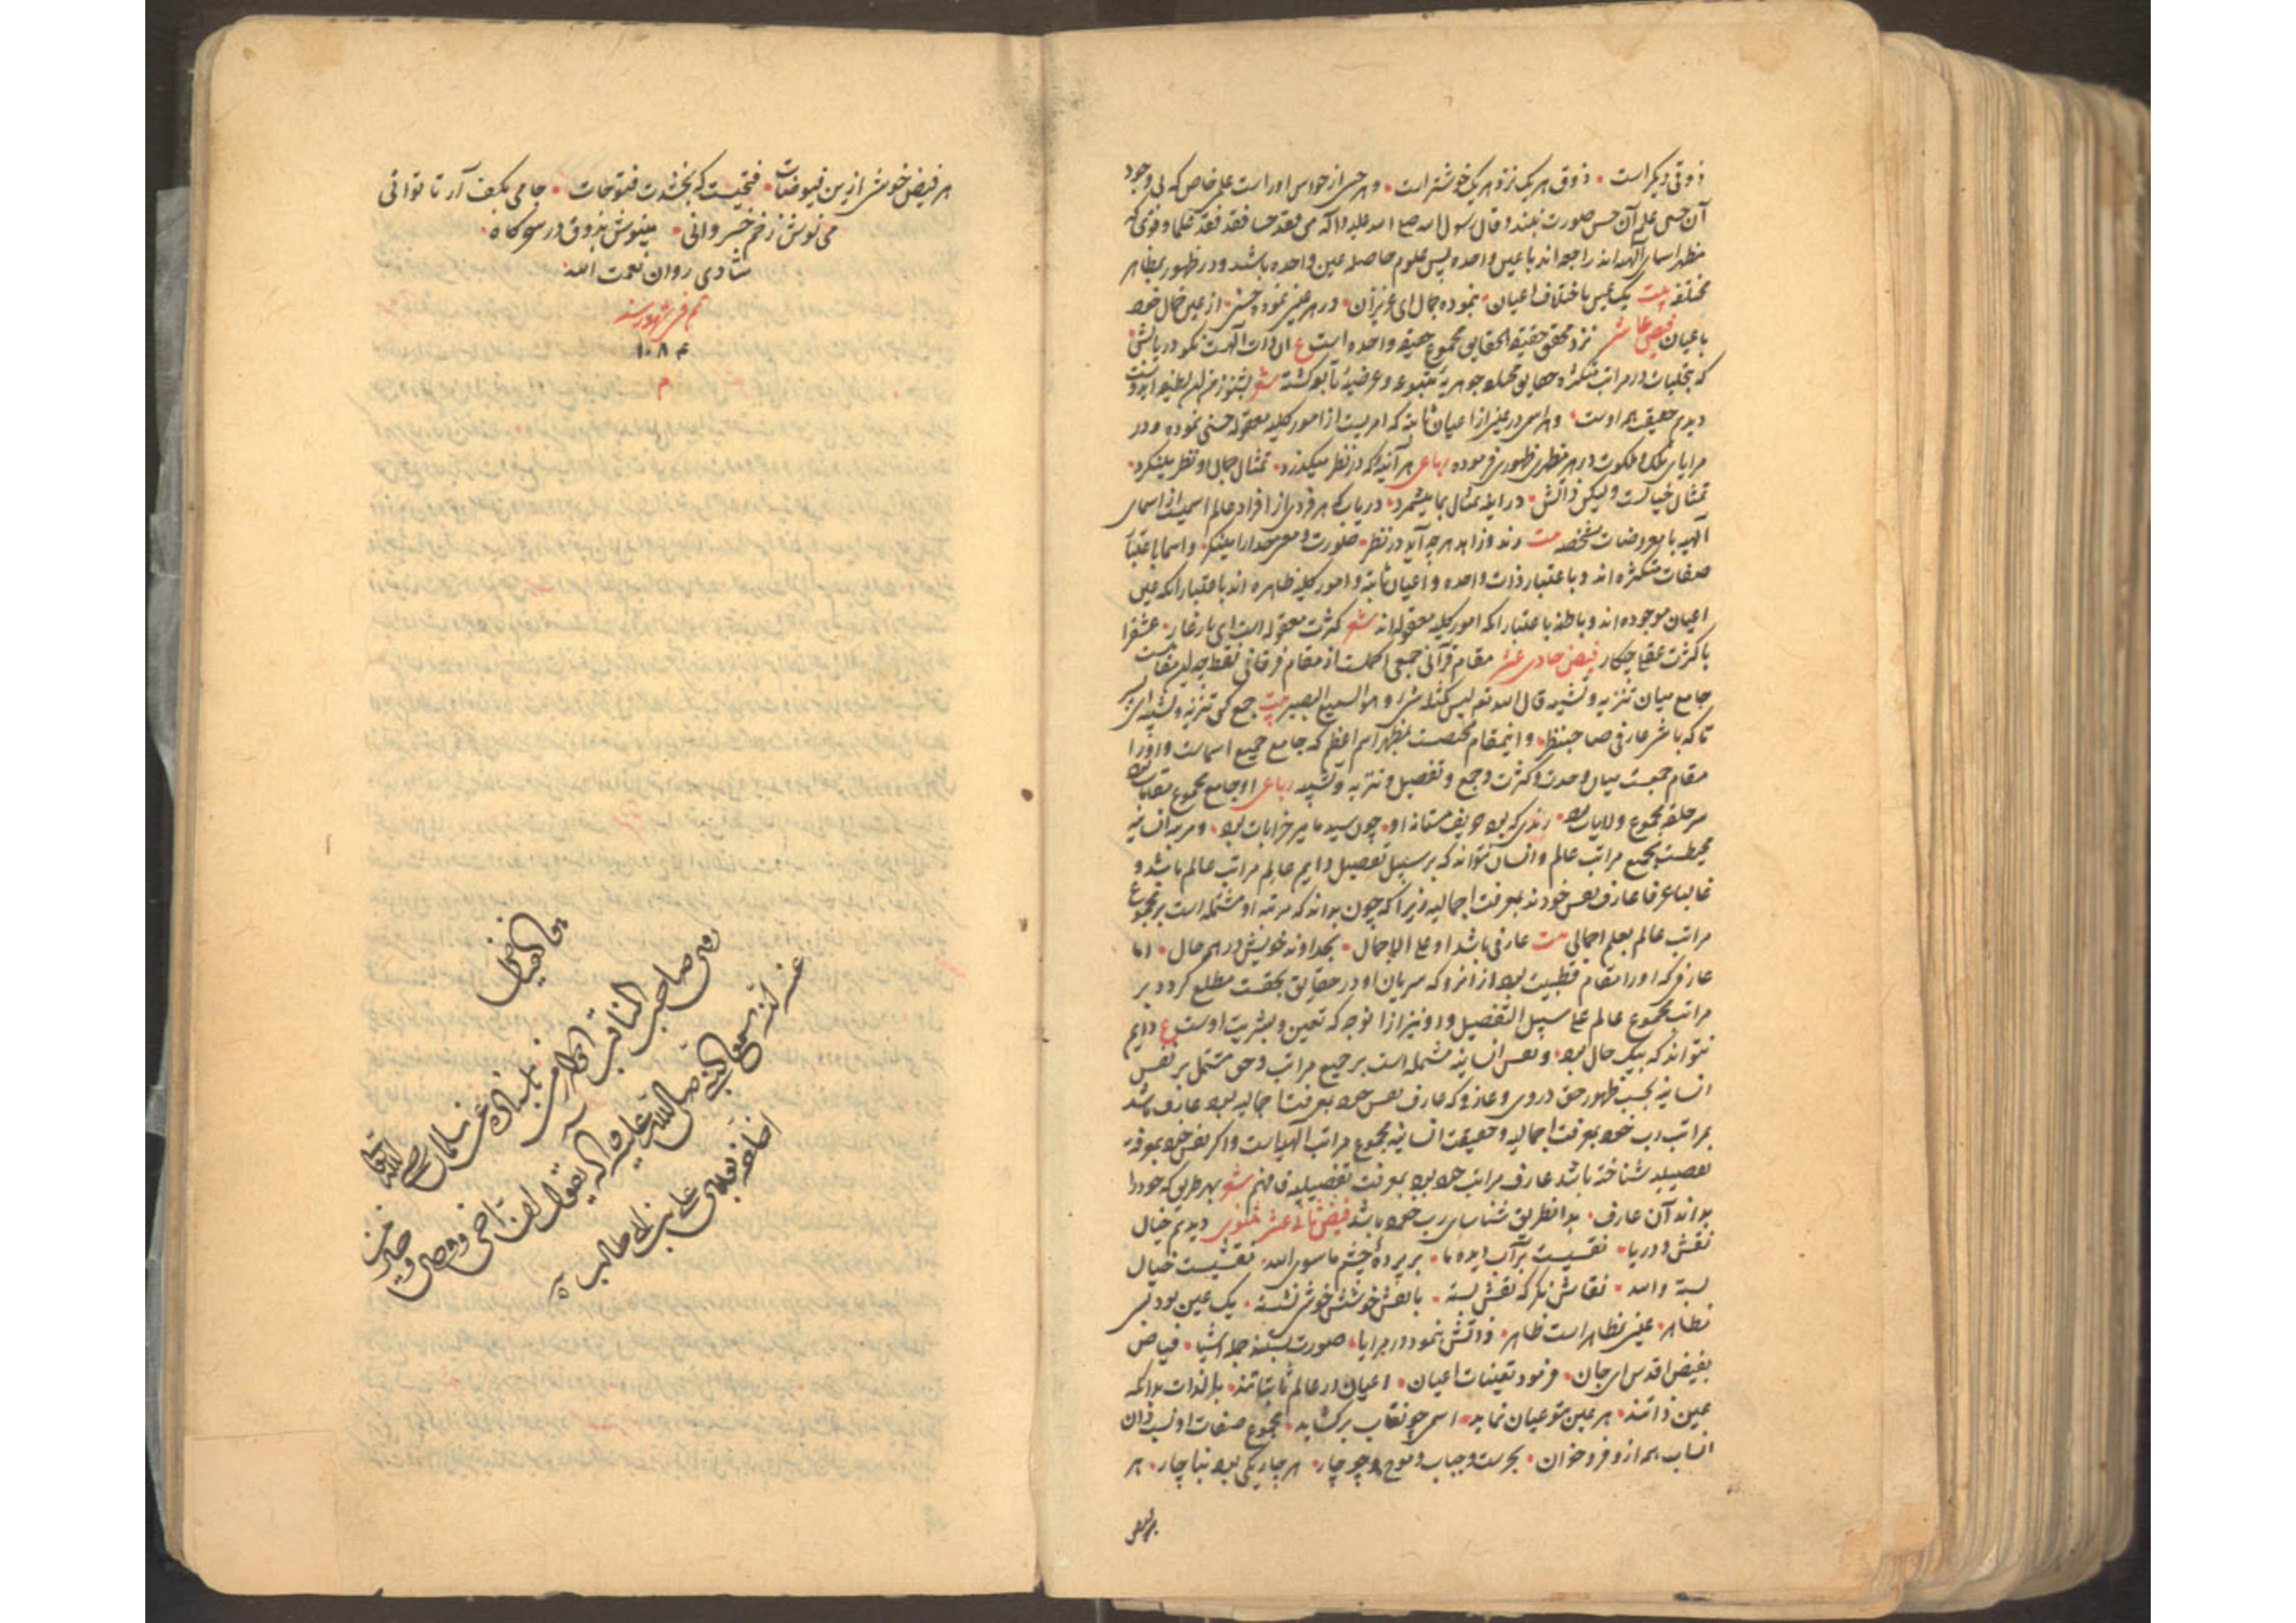 ذوقی دیکر است ۰ ذوق هر یک نزد هر یک خوشتر است ۰ و هر حس از حواس او راست علمی خاص که بی وجود
آن حس علم آن حس صورت نبندد و قال رسول الله صلی الله علیه و آله من فقد حسا فقد فقد علما و قوی که
مظهر اسمای آلهیه‌اند راجعه‌اند با عین واحده پس علوم حاصله عین واحده باشد و در ظهور بمظاهر
مختلفه بیت یک عین باختلاف اعیان ۰ بنموده جمال ای عزیزان ۰ در هر عینی نموده حسنی ۰ از عین کمال خود
باعیان فیض عاشر نزد محقق حقیقة الحقایق مجموع حقیقه واحده است ع آن ذات آلهست نکو دریابش ۰
که بتجلیات در مراتب متکثره و حقایق مختلفه جوهریه متبوعه و عرضیه تابعه کشته شعر بشنو ز من این لطیفه ای
دیدم حقیقت همه اوست ۰ و هر اسمی در عینی از اعیان ثابته که امریست از امور کلیه معقوله حسنی نموده و در
مرایای ملک و ملکوت در هر مظهری ظهوری فرموده رباعی هر آینه که در نظر میکذرد ۰ تمثال جمال او نظر مینکرد ۰
تمثال خیالست ولیکن ذاتش ۰ در آینه تمثال بما میشمرد ۰ دریاب که هر فردی از افراد عالم اسمیست از اسمای
آلهیه با معروضات مشخصه بیت رند و زاهد هر چه آید در نظر ۰ صورت و معنی خدا را مینکر ۰ و اسما باعتبار
صفات متکثره‌اند و باعتبار ذات واحده و اعیان ثابته و امور کلیه ظاهره‌اند باعتبار آنکه عین
اعیان موجوده‌اند و باطنه باعتبار آنکه امور کلیه معقوله‌اند شعر کثرت معقوله است ای یار غار ۰ عشق را
با کثرت عقلی چکار فیض حادی عشر مقام قرآنی جمعی اکملست از مقام فرقانی فقط چه این مقامیست
جامع میان تنزیه و تشبیه قال الله تع لیس کمثله شیء و هو السمیع البصیر بیت جمع کن تنزیه و تشبیه ای پسر
تا که باشی عارفی صاحب‌نظر ۰ و این مقام مختصست بمظهر اسم اعظم که جامع جمیع اسماست و او را
مقام جمعست میان وحدت و کثرت و جمع و تفصیل و تنزیه و تشبیه رباعی او جامع مجموع مقامات بود
سر حلقه مجموع ولایات بود ۰ رندی که بود حریف مستانه او ۰ چون سید ما میر خرابات بود ۰ و مرتبه انسانیه
محیطست بجمیع مراتب عالم و انسان نتواند که بر سبیل تفصیل دایم عالم مراتب عالم باشد و
غالبا عرفا عارف نفس خودند بمعرفت اجمالیه زیرا که چون بدانند که مرتبه او مشتمله است بر مجموع
مراتب عالم بعلم اجمالی بیت عارفی باشد او علی الاجمال ۰ بخداوند خویش در همه حال ۰ اما
عارفی که او را مقام قطبیت بود از آنرو که سریان او در حقایق بحقست مطلع کردد بر
مراتب مجموع عالم علی سبیل التفصیل و او نیز از آنوجه که تعین و بشریت اوست ع دایم
نتواند که بیک حال بود ۰ و نفس انسانیه مشتمله است بر جمیع مراتب و حق مشتمل بر نفس
انسانیه بحسب ظهور حق در وی و عارفی که عارف نفس خود بمعرفت اجمالیه بود عارف باشد
بمراتب رب خود بمعرفت اجمالیه و حقیقت انسانیه مجموع مراتب آلهیه است و اکر نفس خود بمعرفة
تفصیلیه شناخته باشد عارف مراتب خود بود بمعرفت تفصیلیه فافهم شعر بهر طریق که خود را
بداند آن عارف ۰ بدان طریق شناسای رب خود باشد فیض ثانی عشر مثنوی دیدیم خیال
نقش و دریا ۰ نقشیست بر آب دیده ما ۰ بر پرده چشم ما سوی الله ۰ نقشیست خیال
بسته والله ۰ نقاش نکر که نقش بسته ۰ با نقش خوشش خوشی نشسته ۰ یک عین بود بسی
مظاهر ۰ عینی بمظاهر است ظاهر ۰ ذاتش بنمود در مرایا ۰ صورت بستند جمله اشیا ۰ فیاض
بفیض اقدس ای جان ۰ فرمود تعینات اعیان ۰ اعیان در عالم ثابتاتند ۰ بالذات بدانکه
عین ذاتند ۰ هر عین بتو عیان نماید ۰ اسمی چو نقاب برکشاید ۰ مجموع صفات او نسب دان
انساب همه از و فرو خوان ۰ بحرست و حباب و موج و جو چار ۰ هر چار یکی بود بناچار ۰ هر
هر فیض خوشی ازین فیوضات ۰ فتحیست که بخشدت فتوحات ۰ جامی بکف آر تا توانی
می نوش ز خم خسروانی ۰ مینوش بذوق در سحرکاه ۰
شادی روان نعمت الله
تم فی شهور سنه
۱۰۸۴
م
هو الفیاض
روی صاحب المناقب
باسناده عن سلمان رضی الله تعالی
عنه انه سمع النبی صلی الله علیه و آله یقول ان اخی و وصی و خیر من
اخلفه بعدی علی بن ابی طالب